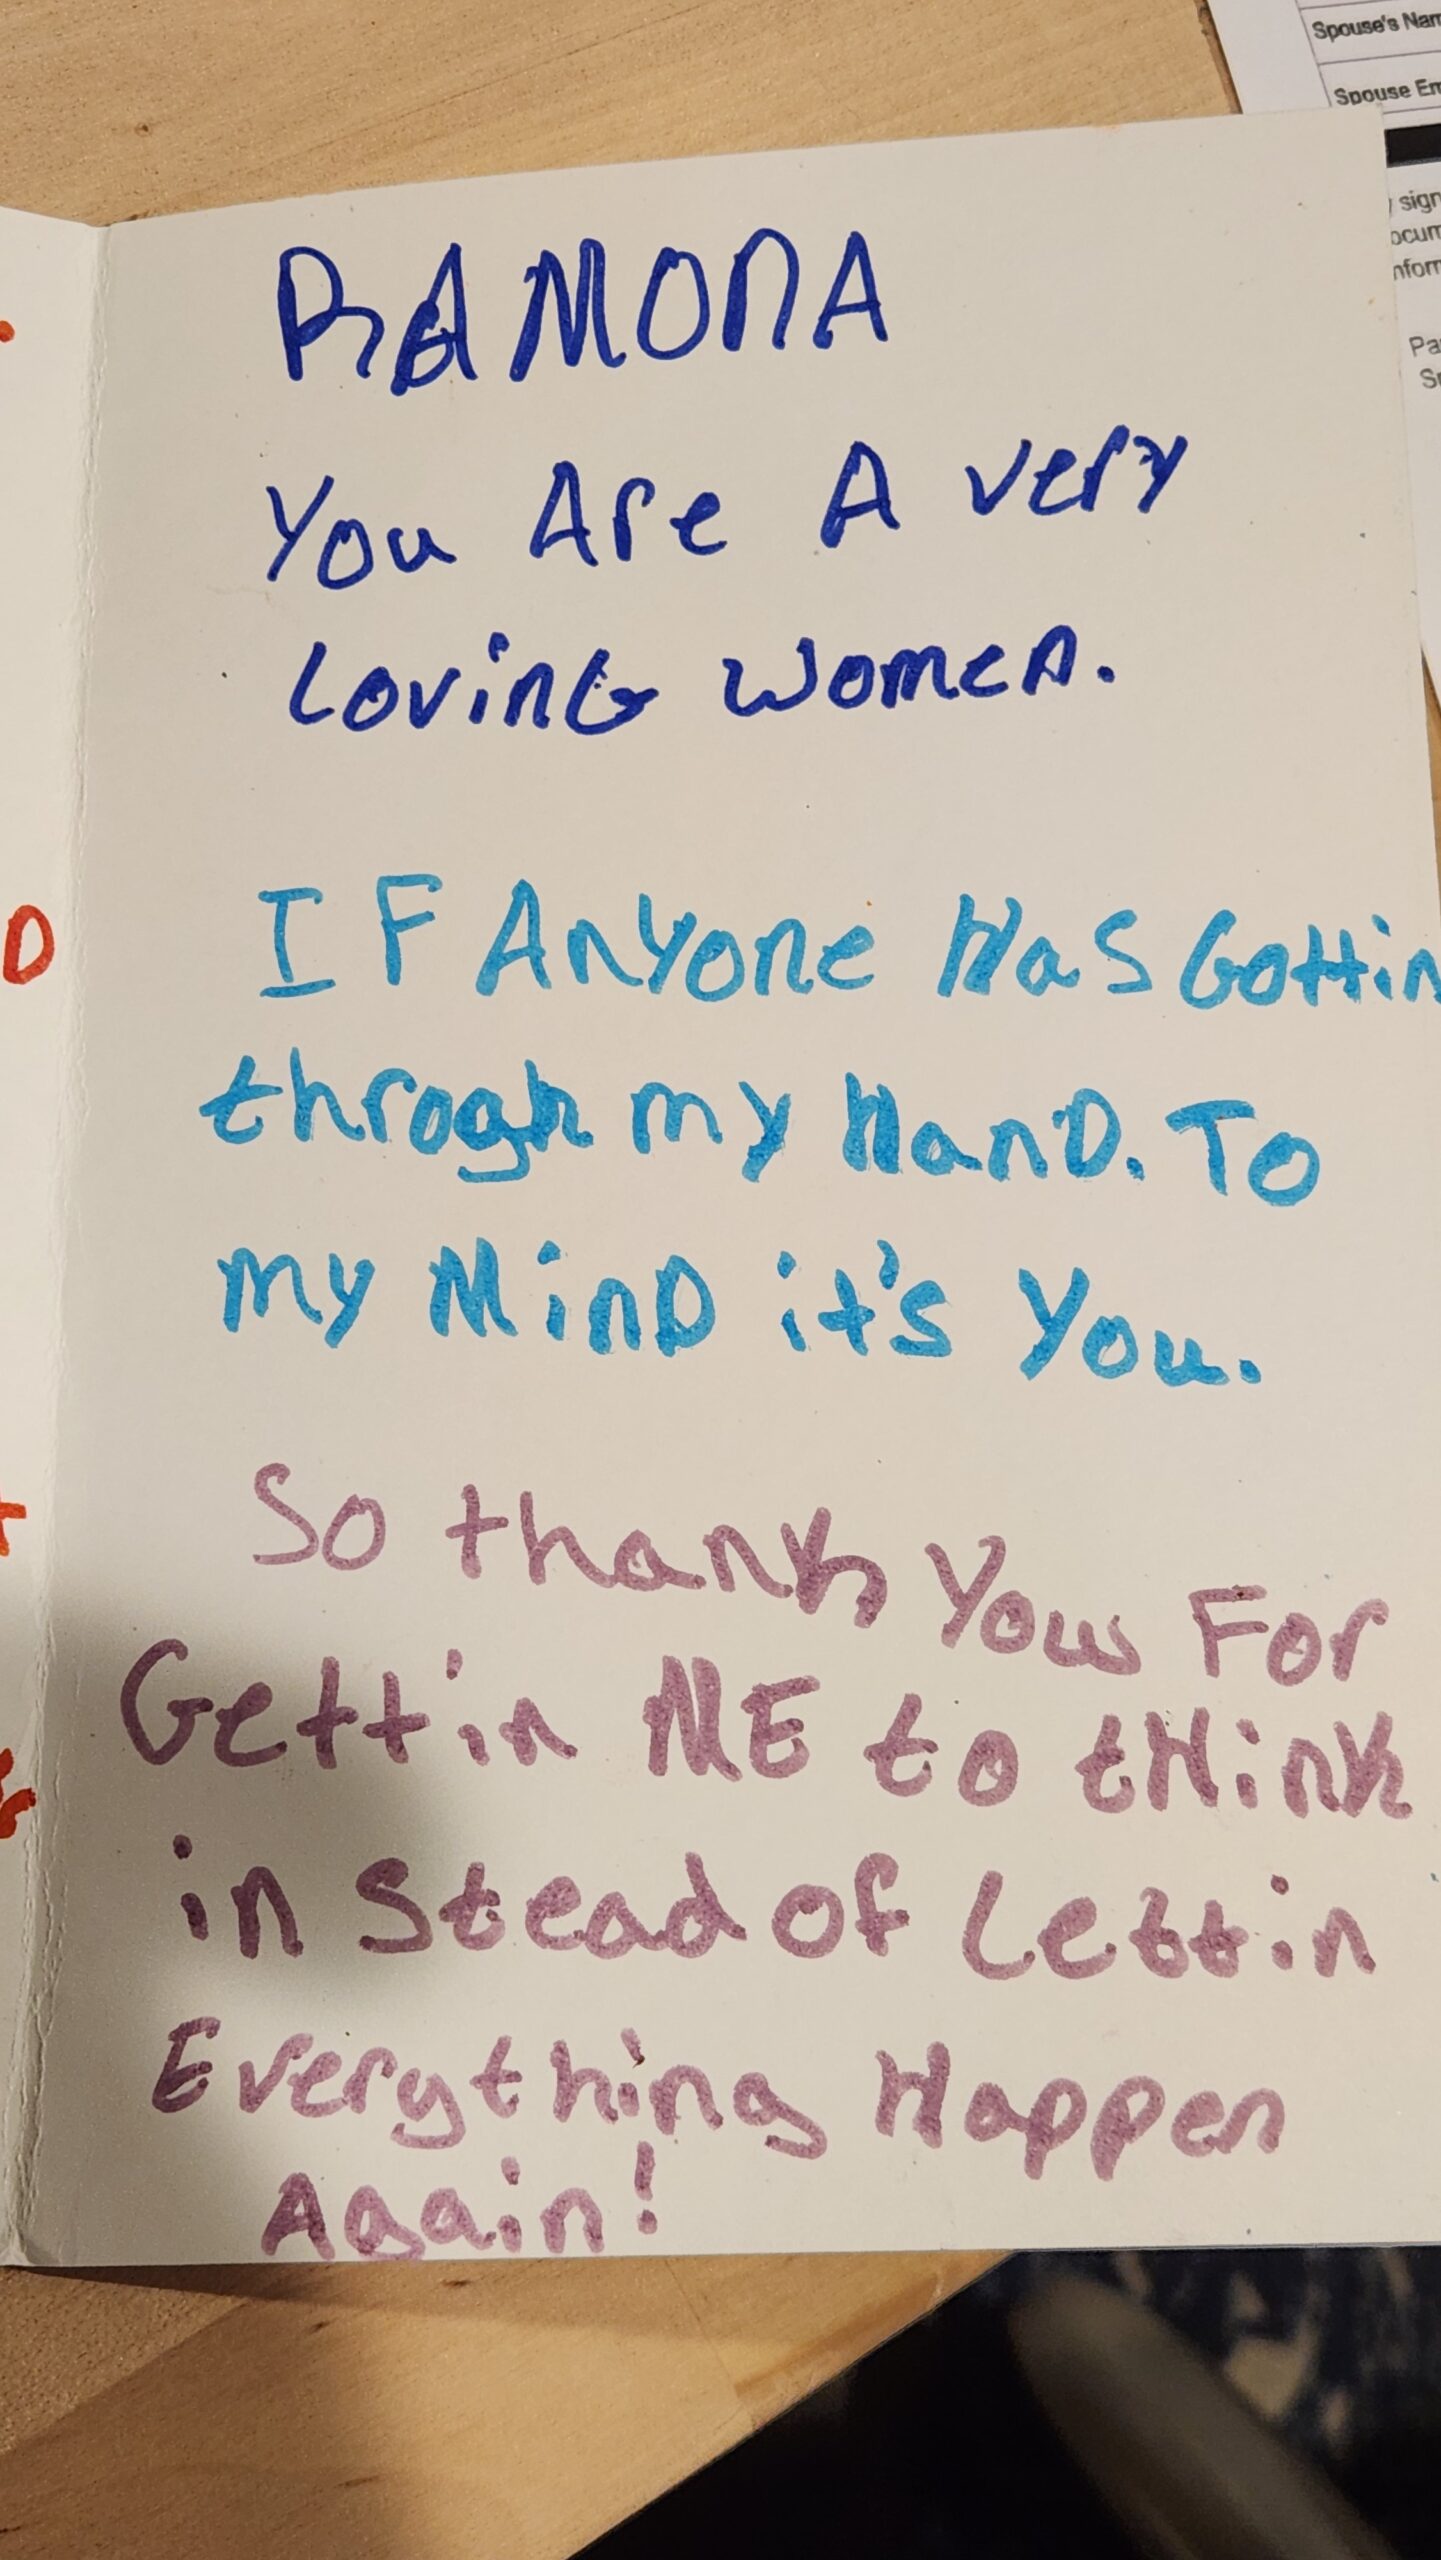 Spouse's Nam
Spouse Em
sign
ocum
nform
Pa
RAMONA
You Are A very
Loving women.
D
IF Anyone Has Gottin
throgh my Hand. To
my MinD it's You.
So thank You For
Gettin ME to tHink
in Stead of Lettin
Everything Happen
Again!